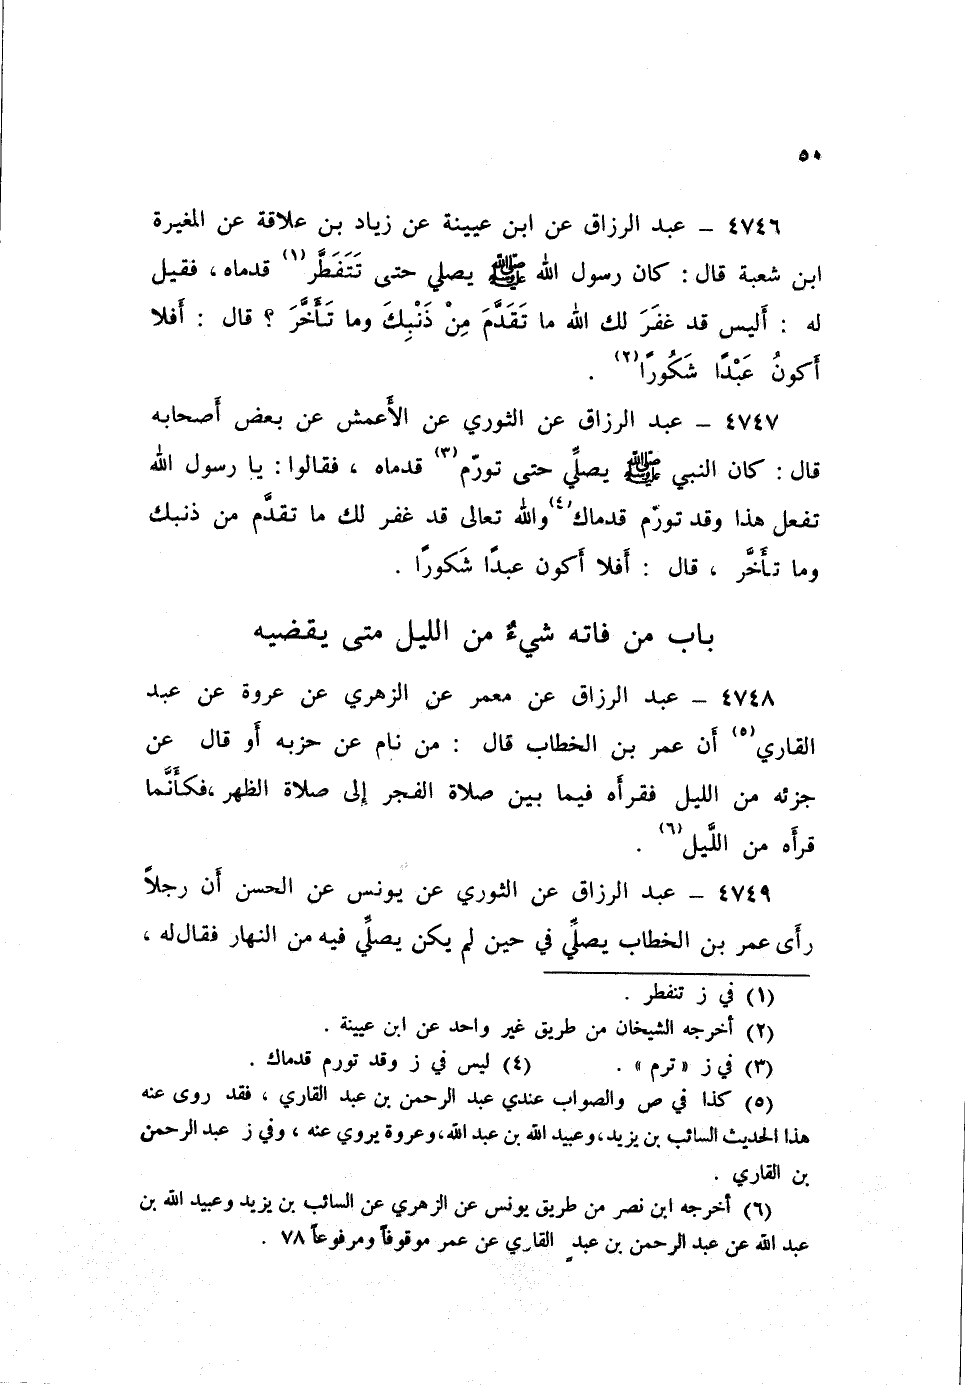 ٥٠
٤٧٤٦ – عبد الرزاق عن ابن عيينة عن زياد بن علاقة عن المغيرة
ابن شعبة قال : كان رسول الله ﷺ يصلي حتى تَتَفَطَّر(١) قدماه ، فقيل
له : أَليس قد غفَرَ لك الله ما تَقَدَّمَ مِنْ ذَنْبِكَ وما تَأَخَّرَ ؟ قال : أَفلا
أَكونُ عَبْدًا شَكُورًا(٢) .
٤٧٤٧ – عبد الرزاق عن الثوري عن الأَعمش عن بعض أَصحابه
قال : كان النبي ﷺ يصلِّي حتى تورّم(٣) قدماه ، فقالوا : يا رسول الله
تفعل هذا وقد تورّم قدماك(٤) والله تعالى قد غفر لك ما تقدَّم من ذنبك
وما تأَخَّر ، قال : أَفلا أَكون عبدًا شَكورًا .
باب من فاته شيءٌ من الليل متى يقضيه
٤٧٤٨ – عبد الرزاق عن معمر عن الزهري عن عروة عن عبد
القاري(٥) أَن عمر بن الخطاب قال : من نام عن حزبه أَو قال عن
جزئه من الليل فقرأَه فيما بين صلاة الفجر إلى صلاة الظهر ،فكأَنَّما
قرأَه من اللَّيل(٦) .
٤٧٤٩ – عبد الرزاق عن الثوري عن يونس عن الحسن أَن رجلاً
رأَى عمر بن الخطاب يصلِّي في حين لم يكن يصلِّي فيه من النهار فقال له ،
(١) في ز تنفطر .
(٢) أخرجه الشيخان من طريق غير واحد عن ابن عيينة .
(٣) في ز « ترم » . (٤) ليس في ز وقد تورم قدماك .
(٥) كذا في ص والصواب عندي عبد الرحمن بن عبد القاري ، فقد روى عنه
هذا الحديث السائب بن يزيد، وعبيد الله بن عبد الله، وعروة يروي عنه ، وفي ز عبد الرحمن
بن القاري .
(٦) أخرجه ابن نصر من طريق يونس عن الزهري عن السائب بن يزيد وعبيد الله بن
عبد الله عن عبد الرحمن بن عبد القاري عن عمر موقوفاً ومرفوعاً ٧٨ .